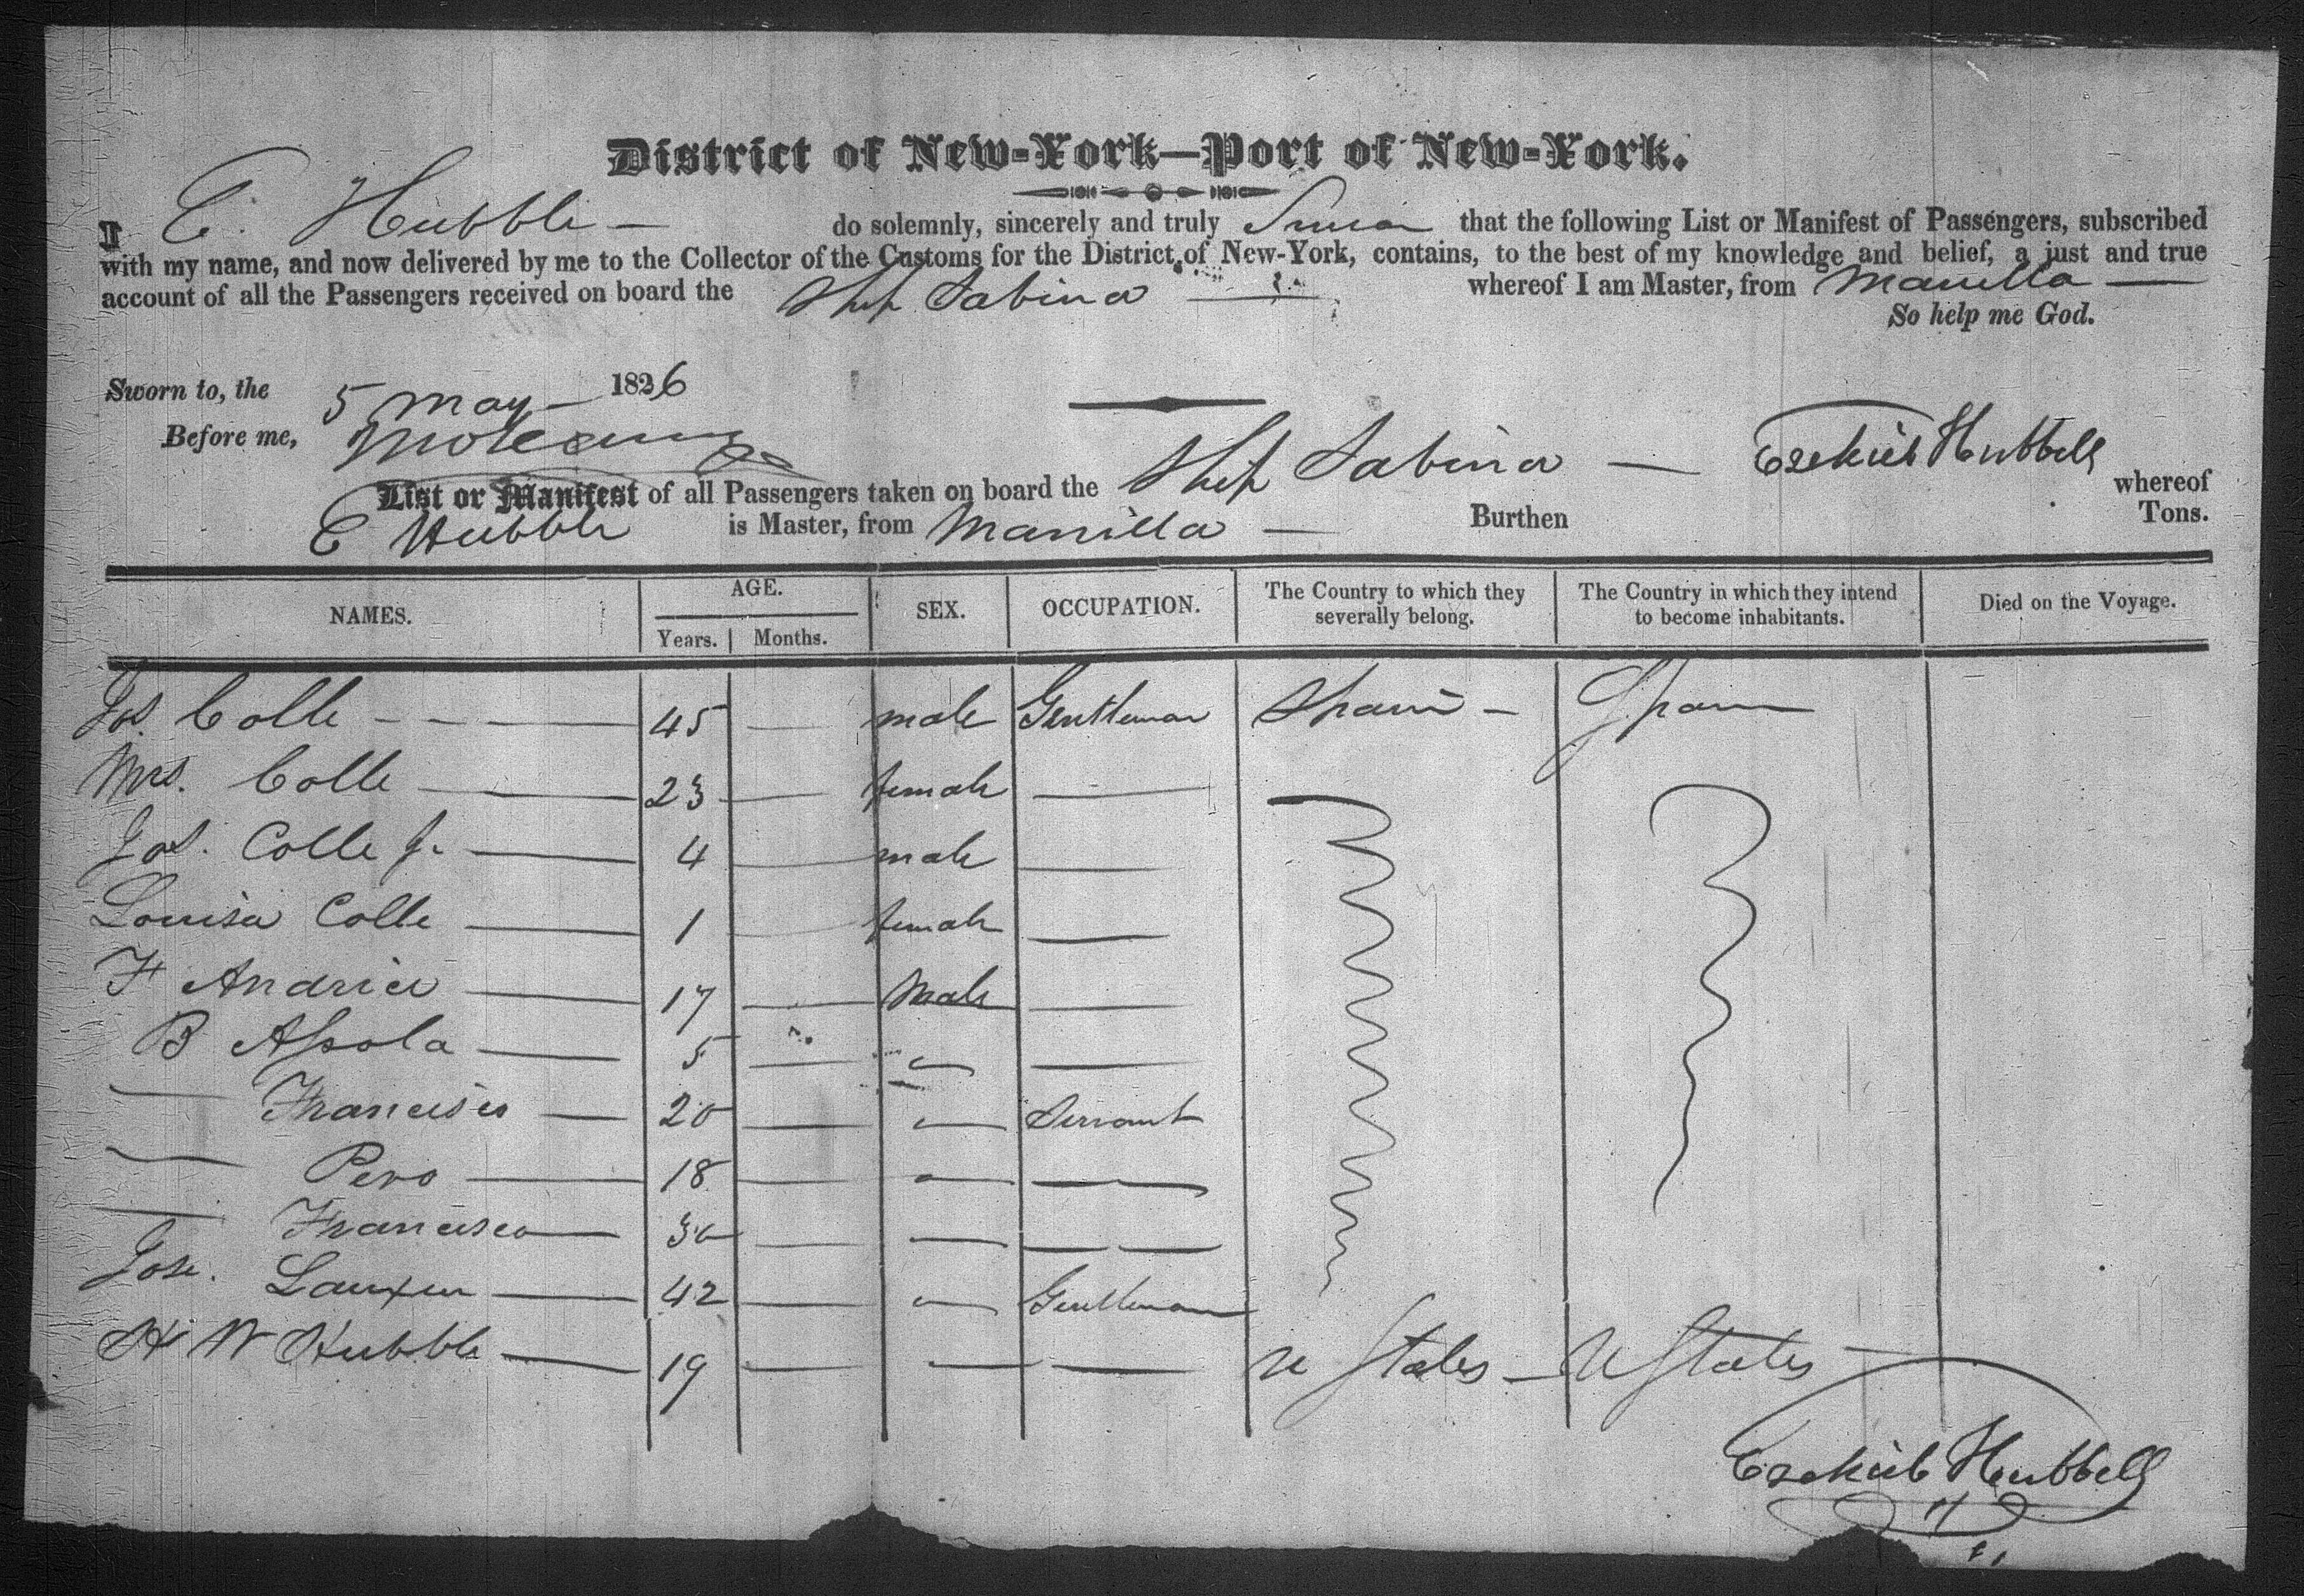 District of New-York—Port of New-York.
I E. Hubble — do solemnly, sincerely and truly Swear that the following List or Manifest of Passengers, subscribed
with my name, and now delivered by me to the Collector of the Customs for the District of New-York, contains, to the best of my knowledge and belief, a just and true
account of all the Passengers received on board the Ship Sabina — whereof I am Master, from Manilla —
So help me God.
Sworn to, the 5 May — 1826
Before me,
Ezekiel Hubbell
List or Manifest of all Passengers taken on board the Ship Sabina — whereof
E Hubble is Master, from Manilla — Burthen Tons.
NAMES. AGE. Years. Months. SEX. OCCUPATION. The Country to which they severally belong. The Country in which they intend to become inhabitants. Died on the Voyage.
Jos. Colle — 45 — male Gentleman Spain — Spain
Mrs. Colle — 23 — female —
Jos. Colle Jr — 4 — male —
Louisa Colle — 1 — female —
F Andrice — 17 — Male —
B Assola — 5 — " —
— Francisco — 20 — " Servant
— Pero — 18 — " —
— Francisco — 30 — — — —
Jose. — 42 — " Gentleman
H W Hubble — 19 — — — U States — U States —
Ezekiel Hubbell